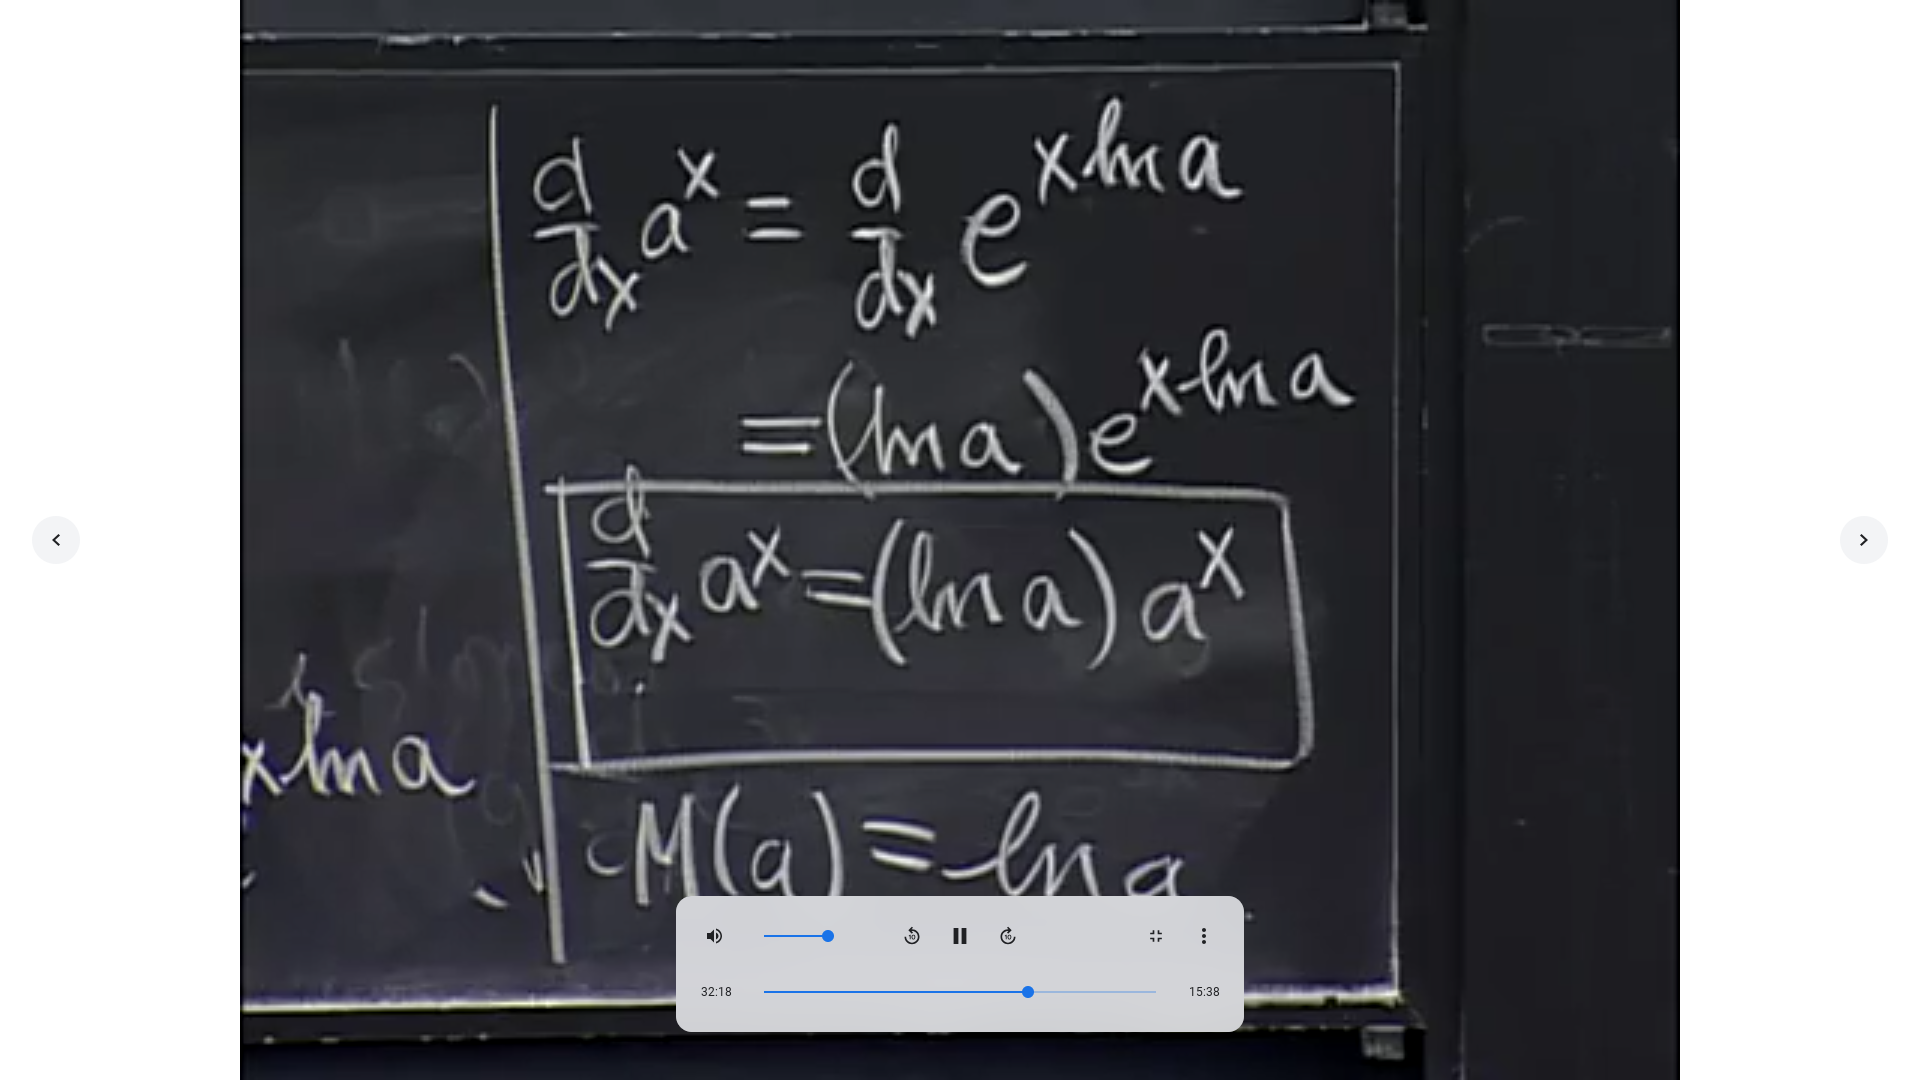 d/dx a^x = d/dx e^(x ln a)
= (ln a) e^(x ln a)
d/dx a^x = (ln a) a^x
x ln a
M(a) = ln a
10
10
32:18
15:38